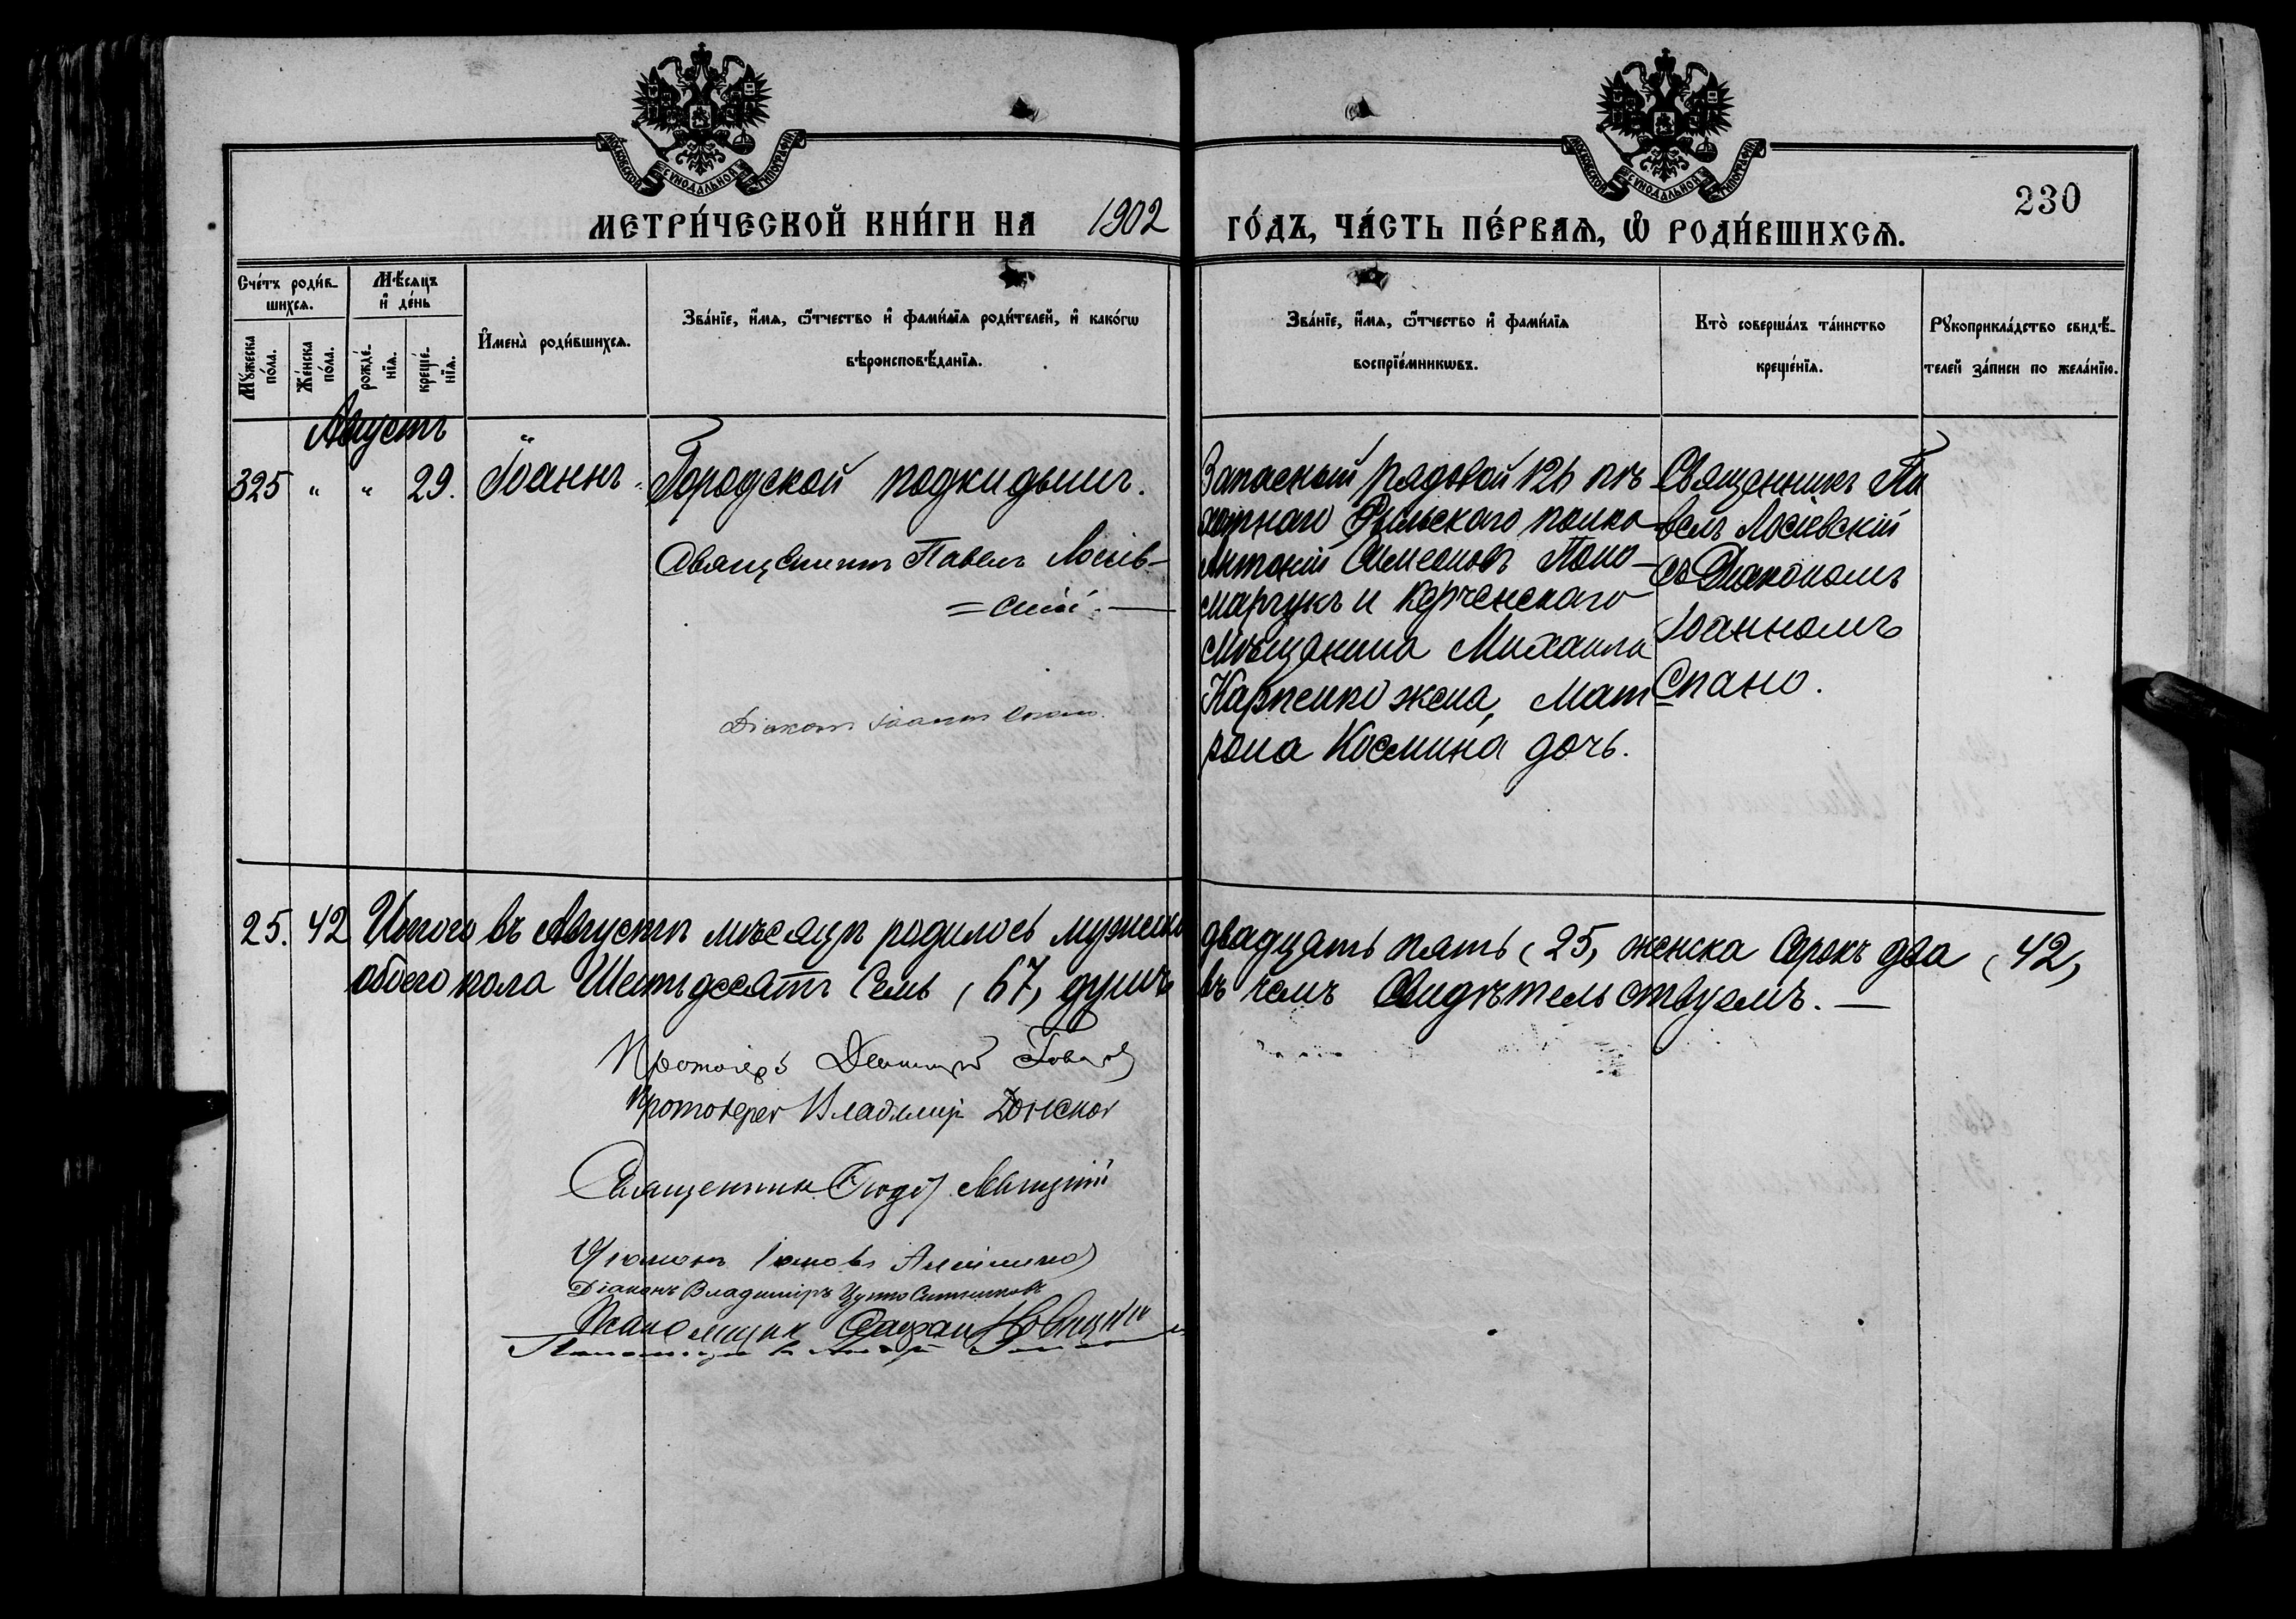 МОСКОВСКОЙ СУНОДАЛЬНОЙ ТИПОГРАФІИ
МОСКОВСКОЙ СУНОДАЛЬНОЙ ТИПОГРАФІИ
МЕТРИ́ЧЕСКОЙ КНИ́ГИ НА 1902 ГО́ДЪ, ЧА́СТЬ ПЕ́РВАѦ, Ѽ РОДИ́ВШИХСѦ.
230
Сче́тъ роди́в-
шихсѧ.
Мꙋ́жеска
по́ла.
Же́нска
по́ла.
Мѣ́сяцъ
и҆ де́нь
рожде́-
нїѧ.
креще́-
нїѧ.
И҆мена̀ роди́вшихсѧ.
Зва́нїе, и҆́мѧ, ѻ҆́тчество и҆ фами́лїѧ роди́телей, и҆ како́гѡ
вѣроисповѣ́данїѧ.
Зва́нїе, и҆́мѧ, ѻ҆́тчество и҆ фами́лїѧ
воспрїе́мникѡвъ.
Кто̀ соверша́лъ та́инство
креще́нїѧ.
Рꙋкоприкла́дство свидѣ́-
телей за́писи по жела́нїю.
Августъ
325 " " 29. Іоаннъ.
Городской подкидышъ.
Священникъ Павелъ Лосіев-
=скій.—
Діаконъ Іоаннъ Спано.
Запасный рядовой 126 пѣ
хотнаго Рыльскаго полка
Антоній Симеоновъ Поно-
марчукъ и Керченскаго
мѣщанина Михаила
Карпенко жена, Мат
рона Космина дочь.
Священникъ Па
велъ Лосіевскій
съ Діакономъ
Іоанномъ
Спано.
25. 42 Итого въ Августѣ мѣсяцѣ родилось мужска двадцать пять (25) женска сорокъ два (42)
обоего пола Шестьдесятъ Семь (67) душъ въ чемъ Свидѣтельствуемъ.—
Протоіерей
Протоіерей Владимір Донской
Священник
Діаконъ Владиміръ
Псаломщик Новицкій
Псаломщикъ